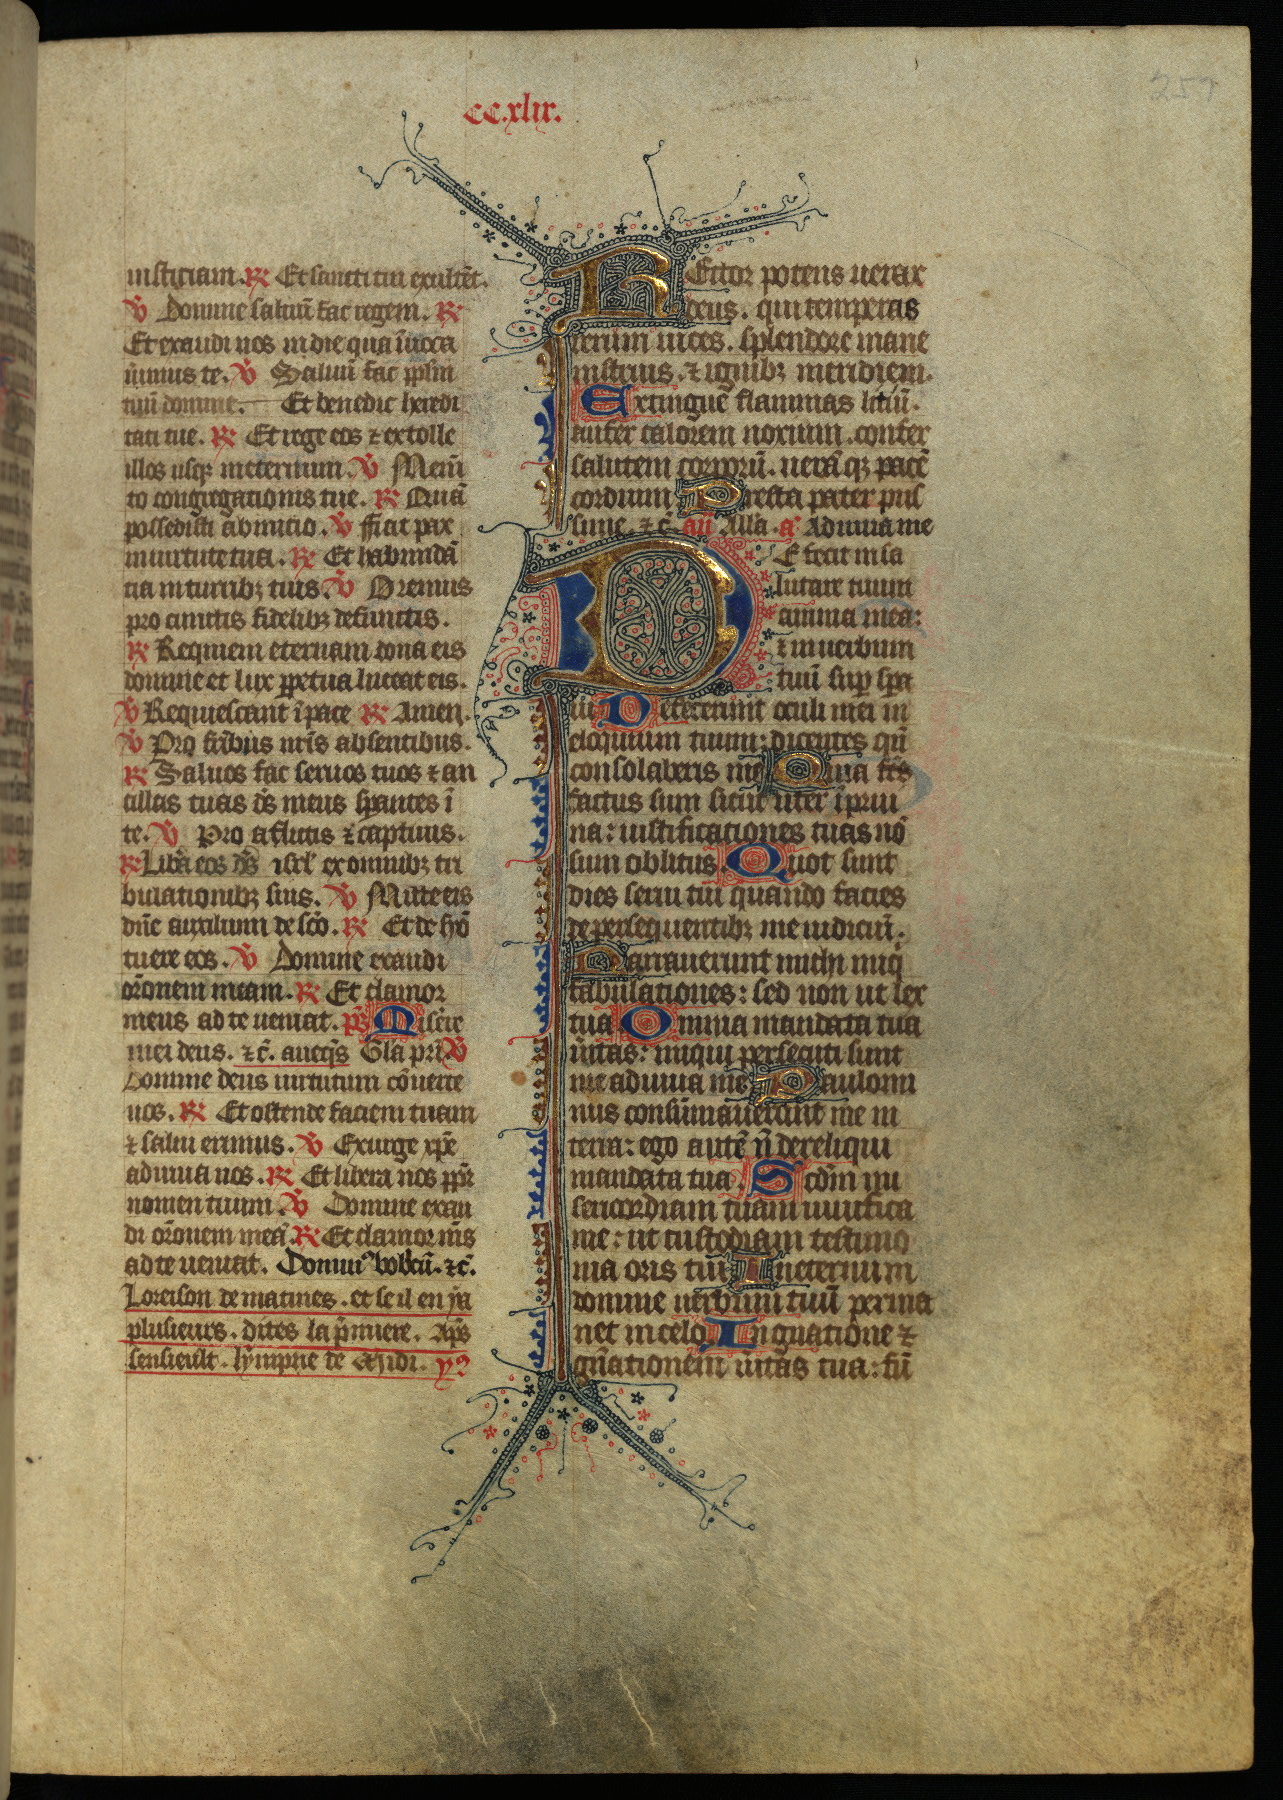 CC.xlix.
iusticiam. R Et sancti tui exultēt.
V Domine saluū fac regem. R
Et exaudi nos in die qua īuoca
uimus te. V Saluū fac pplm
tuū domine. Et benedic heredi
tati tue. R Et rege eos ⁊ extolle
illos usq; in eternum. V Memē
to congregationis tue. R Quā
possedisti ab initio. V Fiat pax
in uirtute tua. R Et habundā
tia in turrib; tuis. V Oremus
pro cunctis fidelib; defunctis.
R Requiem eternam dona eis
domine et lux ppetua luceat eis.
V Requiescant ī pace R Amen.
V Pro frībus nrīs absentibus.
R Saluos fac seruos tuos ⁊ an
cillas tuas ds meus spantes ī
te. V Pro aflictis ⁊ captiuis.
R Liba eos ds isrl' ex omnib; tri
bulationib; suis. V Mitte eis
dnē auxilium de scō. R Et de syō
tuere eos. V Domine exaudi
orōnem meam. R Et clamor
meus ad te ueniat. ps Misere
mei deus. ⁊ c̄. auecqs Gla pri V
Domine deus uirtutum cōuerte
nos. R Et ostende faciem tuam
⁊ salui erimus. V Exurge xpe
adiuua nos. R Et libera nos ppr
nomen tuum V Domine exau
di orōnem meā. R Et clamor mīs
ad te ueniat. Domin⁹ uobcū. ⁊ c̄.
Loreison de matines. et se il en ya
plusieurs. dites la pmiere. Aps
sensieult. lympne de midi. y⁹
Rector potens uerax
deus. qui temperas
rerum uices. splendore mane
instruis. ⁊ ignib; meridiem.
Extingue flammas litiū.
aufer calorem noxium. confer
salutem corporū. uerā q; pacē
cordium Presta pater piis
sime. ⁊ c̄. an Alla. a Adiuua me
DEfecit in sa
lutare tuum
anima mea:
⁊ in uerbum
tuū sup spa
ui Defecerunt oculi mei in
eloquium tuum: dicentes qn
consolaberis me Quia fcs
factus sum sicut uter ī prui
na: iustificationes tuas nō
sum oblitus. Quot sunt
dies serui tui quando facies
de persequentib; me iudiciū.
Narrauerunt michi iniq
fabulationes: sed non ut lex
tua Omnia mandata tua
ūitas: iniqui persecuti sunt
me adiuua me Paulomi
nus consūmauerunt me in
terra: ego autē n̄ dereliqui
mandata tua. Scdm mi
sericordiam tuam uiuifica
me: ut custodiam testimo
nia oris tui In eternum
domine uerbum tuū perma
net in celo. In gnatione ⁊
gnationem ūitas tua: fū